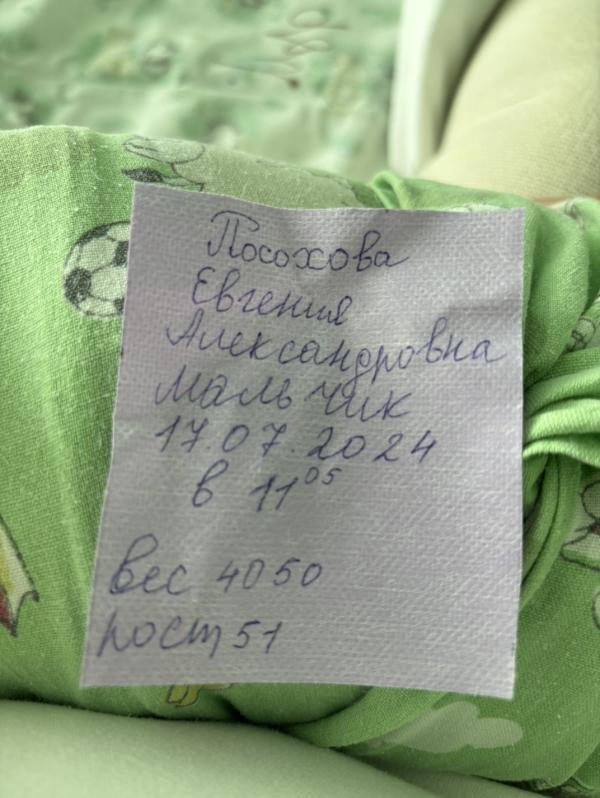 Посохова
Евгения
Александровна
Мальчик
17.07.2024
в 11⁰⁵
Вес 4050
рост 51